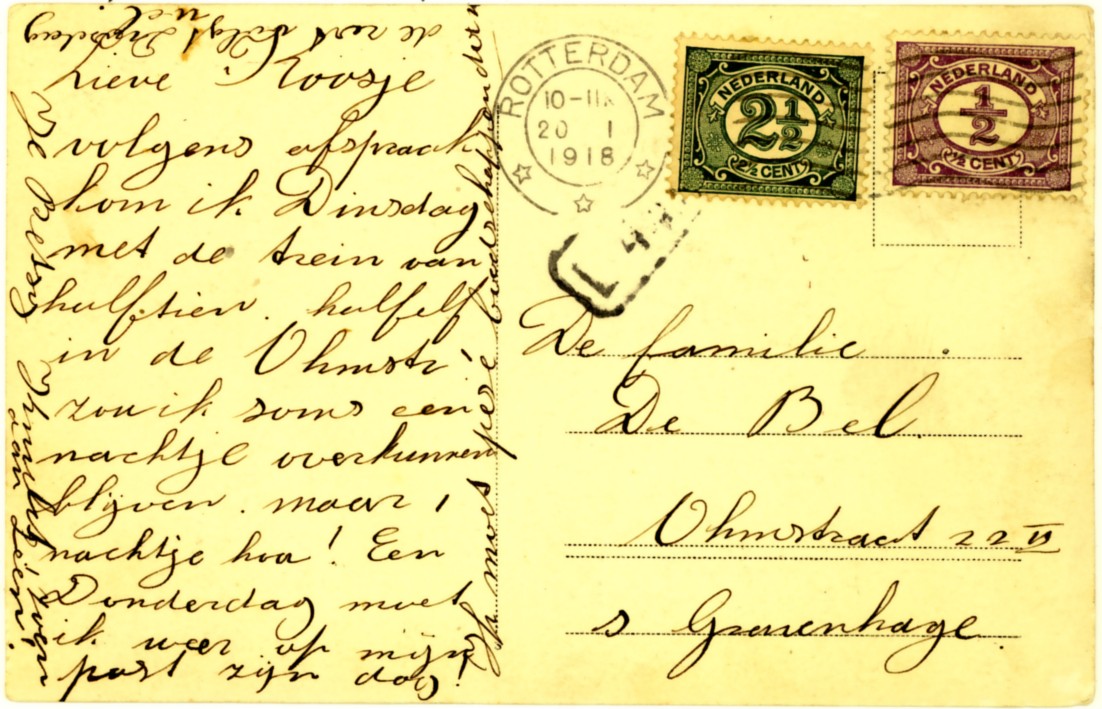 Lieve Koosje
volgens afspraak
kom ik Dinsdag
met de trein van
halftien. halfelf
in de Ohmstr!
zou ik soms een
nachtje overkunnen
blijven. maar 1
nachtje hoa! Een
Donderdag moet
ik weer op mijn
post zijn dag!
de rest volgt Dinsdag
wel
Je Betsy
van Leen!
ROTTERDAM
10-11
20 I
1918
NEDERLAND
2½
2½ CENT
NEDERLAND
½
½ CENT
L
De familie
De Bel.
Ohmstraat 22 II
s Gravenhage.